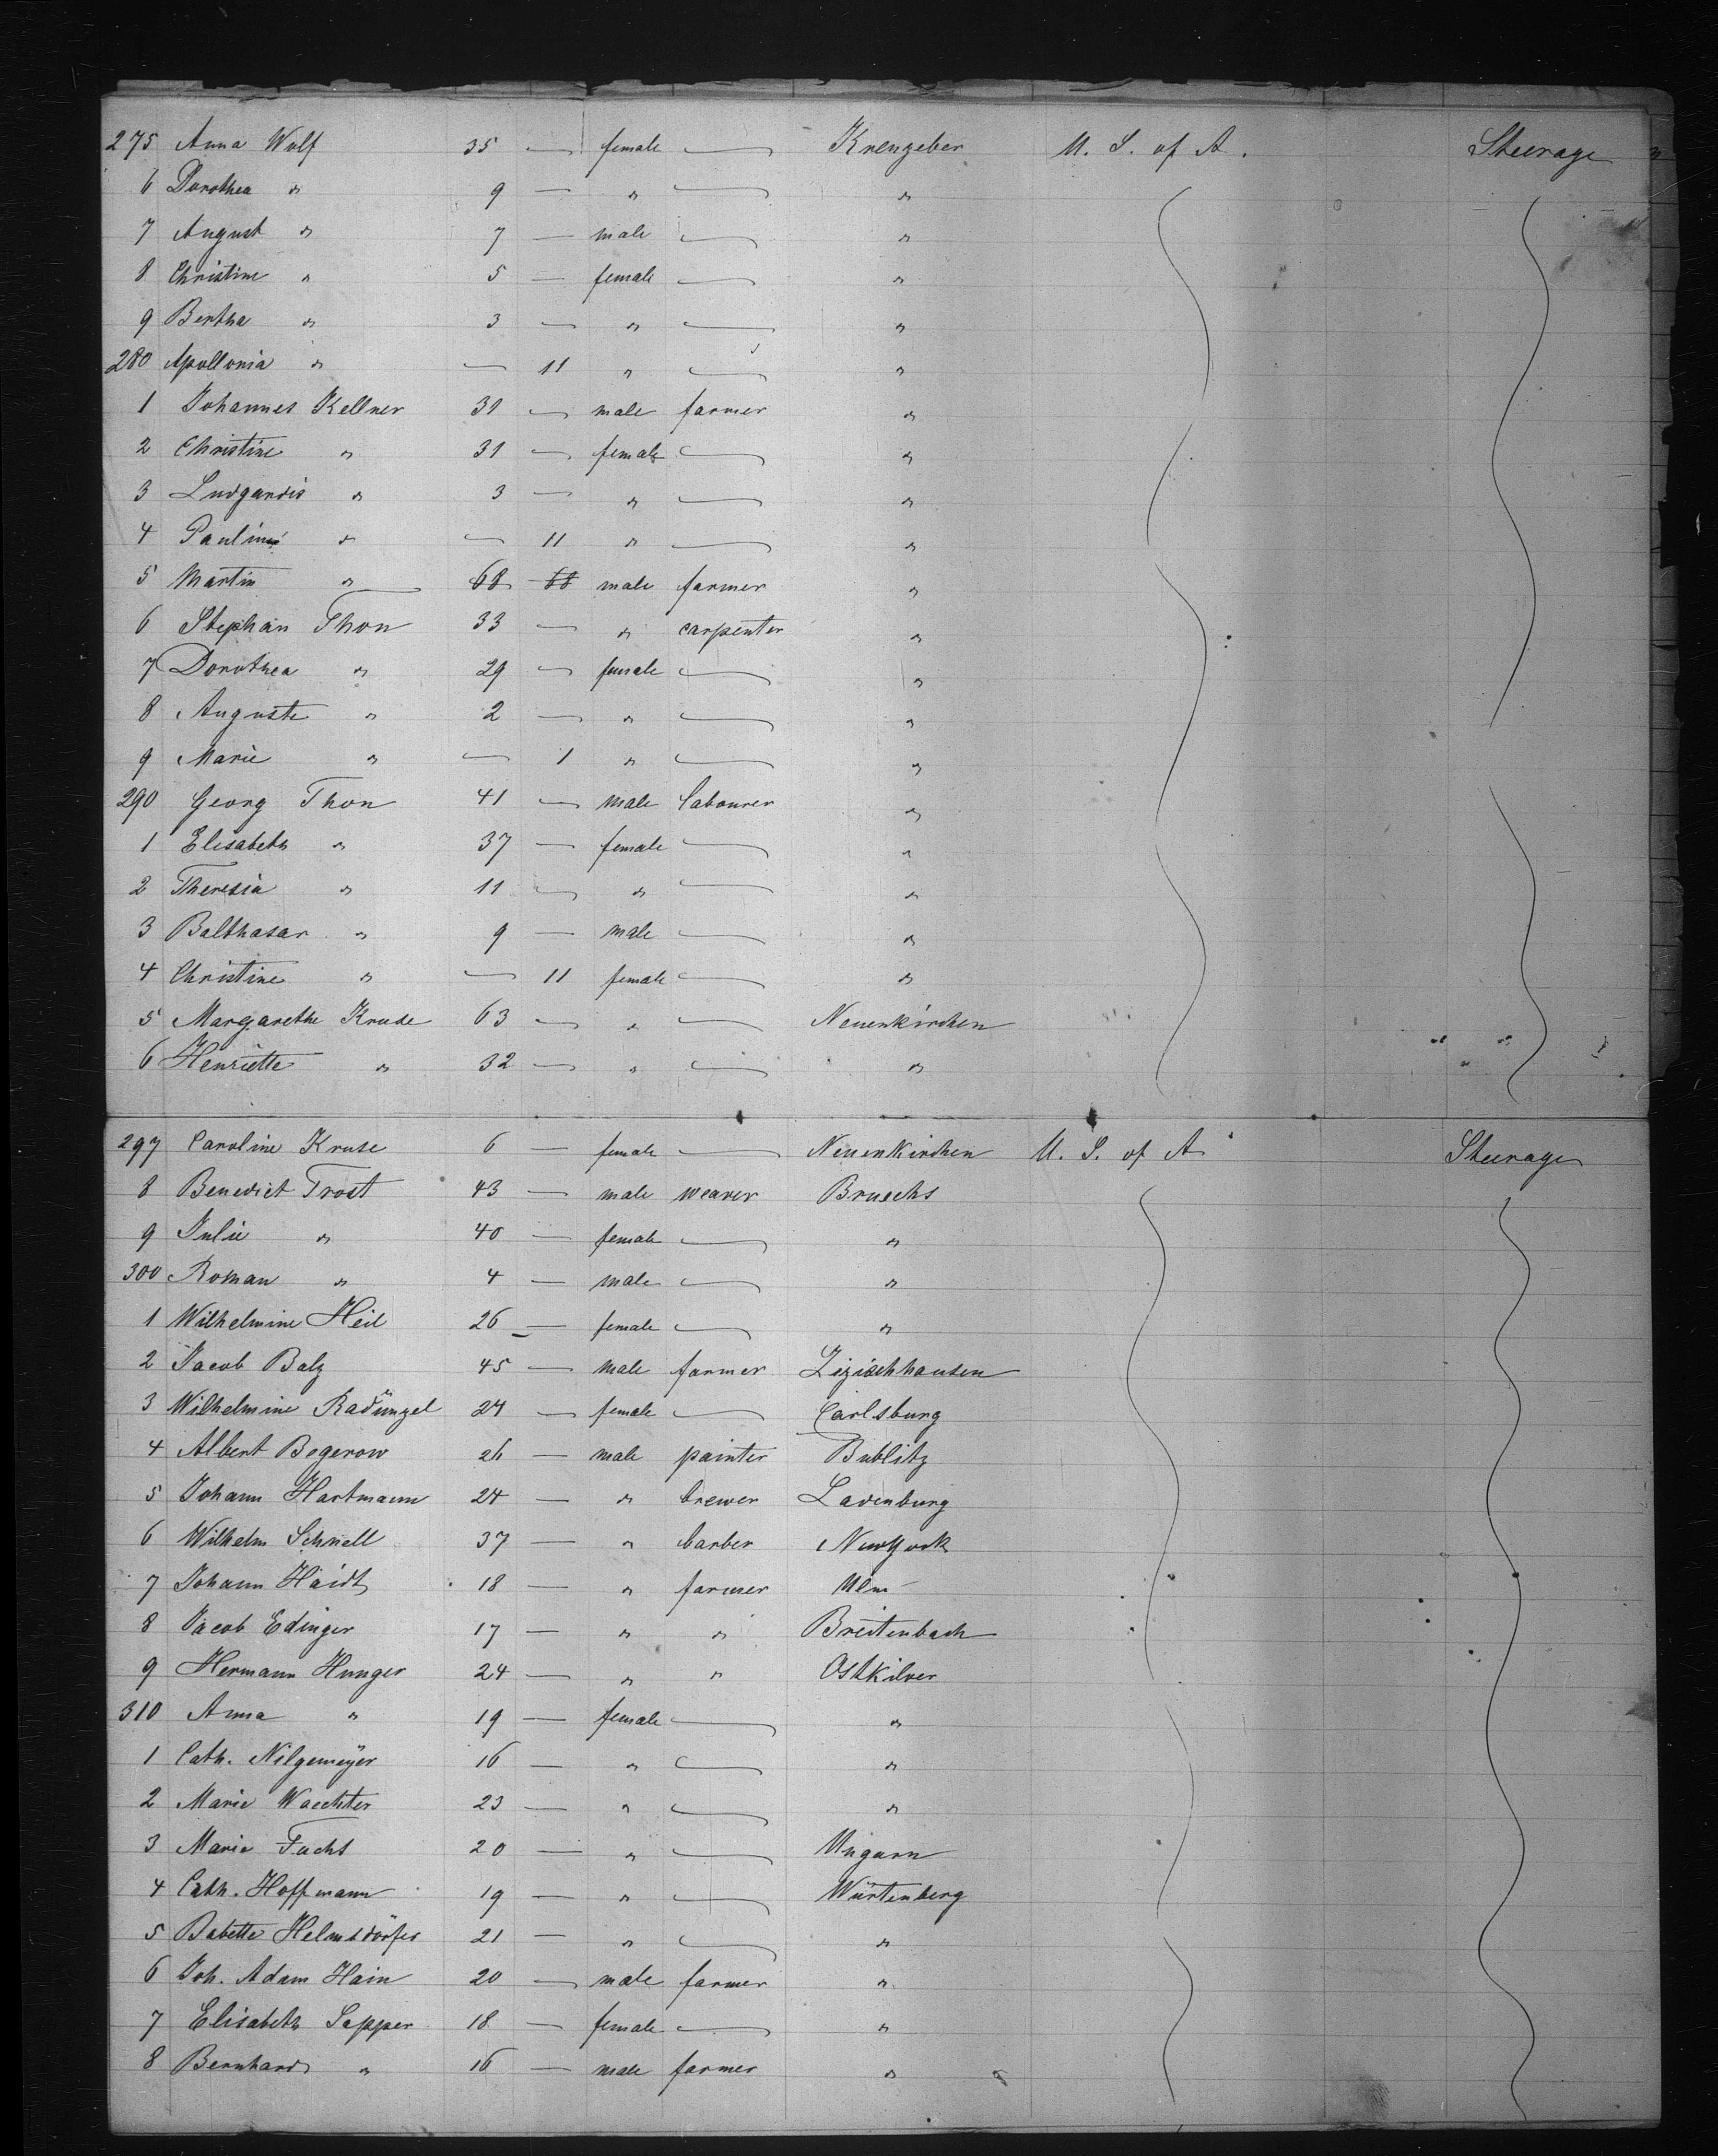 275 Anna Wolf 35 — female — Krengeber U. S. of A. Steerage
6 Dorothea " 9 — " — "
7 August " 7 — male — "
8 Christine " 5 — female — "
9 Bertha " 3 — " — "
280 Apollonia " — 11 " — "
1 Johannes Kellner 31 — male farmer "
2 Christine " 31 — female — "
3 Ludgardis " 3 — " — "
4 Pauline " — 11 " — "
5 Martin " 68 — male farmer "
6 Stephan Thon 33 — " carpenter "
7 Dorothea " 29 — female — "
8 Auguste " 2 — " — "
9 Marie " — 1 " — "
290 Georg Thon 41 — male labourer "
1 Elisabeth " 37 — female — "
2 Theresia " 11 — " — "
3 Balthasar " 9 — male — "
4 Christine " — 11 female — "
5 Margarethe Kruse 63 — " — Neuenkirchen
6 Henriette " 32 — " — "
297 Caroline Kruse 6 — female — Neuenkirchen U. S. of A Steerage
8 Benedict Trost 43 — male weaver Bruechs
9 Julie " 40 — female — "
300 Roman " 4 — male — "
1 Wilhelmine Heil 26 — female — "
2 Jacob Balz 45 — male farmer Zizischhausen
3 Wilhelmine Radünzel 24 — female — Carlsburg
4 Albert Bogerow 26 — male painter Bublitz
5 Johann Hartmann 24 — " brewer Ladenburg
6 Wilhelm Schnell 37 — " barber New York
7 Johann Haidt 18 — " farmer Ulm
8 Jacob Edinger 17 — " " Breitenbach
9 Hermann Hunger 24 — " " Ostkilver
310 Anna " 19 — female — "
1 Cath. Nilgemeÿer 16 — " — "
2 Marie Waechter 23 — " — "
3 Marie Fuchs 20 — " — Ungarn
4 Cath. Hoffmann 19 — " — Würtenberg
5 Babette Helmsdörfer 21 — " — "
6 Joh. Adam Hain 20 — male farmer "
7 Elisabeth Sapper 18 — female — "
8 Bernhard " 16 — male farmer "